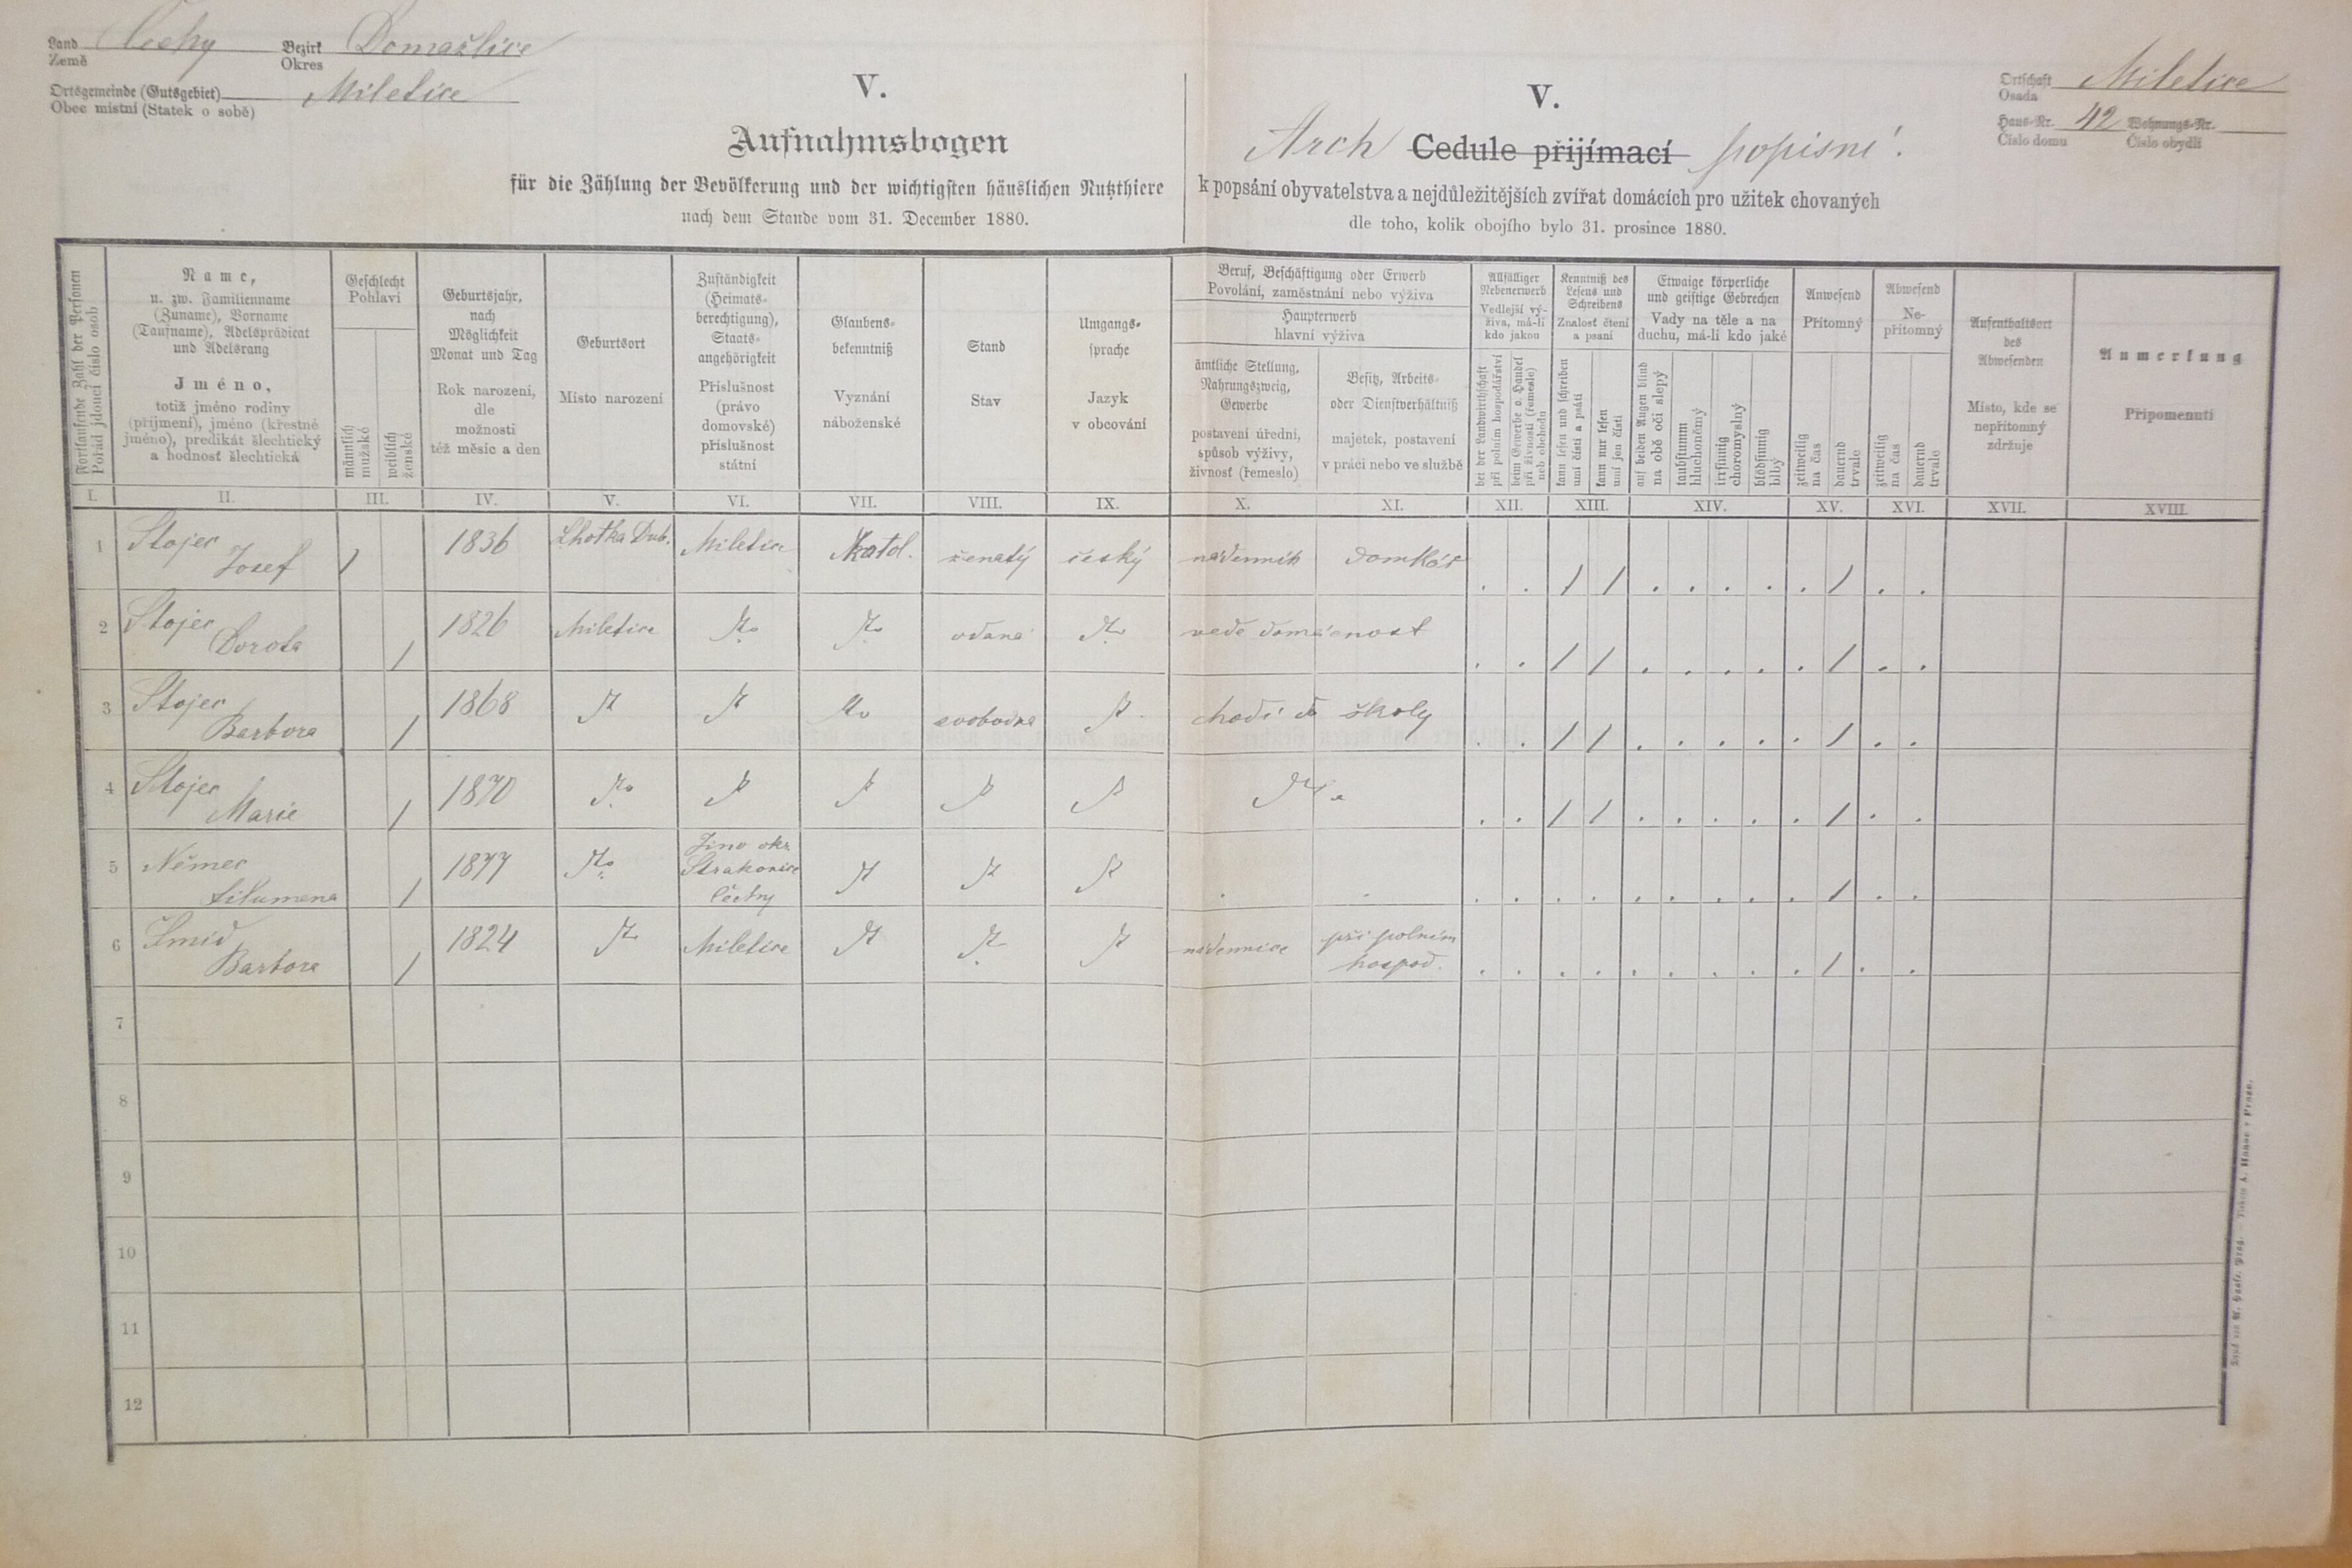 Land Čechy Bezirk Domažlice
Země Okres
Ortsgemeinde (Gutsgebiet) Miletice
Obec místní (Statek o sobě)
V.
Aufnahmsbogen
für die Zählung der Bevölkerung und der wichtigsten häuslichen Nutzthiere
nach dem Stande vom 31. December 1880.
V.
Arch Cedule přijímací popisní.
k popsání obyvatelstva a nejdůležitějších zvířat domácích pro užitek chovaných
dle toho, kolik obojího bylo 31. prosince 1880.
Ortschaft Miletice
Osada
Haus-Nr. 42 Wohnungs-Nr.
Číslo domu Číslo obydlí
Fortlaufende Zahl der Personen
Pořád jdoucí číslo osob
Name,
u. zw. Familienname
(Zuname), Vorname
(Taufname), Adelsprädicat
und Adelsrang
Jméno,
totiž jméno rodiny
(příjmení), jméno (křestné
jméno), predikát šlechtický
a hodnosť šlechtická
Geschlecht
Pohlaví
männlich
mužské
weiblich
ženské
Geburtsjahr,
nach
Möglichkeit
Monat und Tag
Rok narození,
dle
možnosti
též měsíc a den
Geburtsort
Místo narození
Zuständigkeit
(Heimats-
berechtigung),
Staats-
angehörigkeit
Příslušnost
(právo
domovské)
příslušnost
státní
Glaubens-
bekenntniß
Vyznání
náboženské
Stand
Stav
Umgangs-
sprache
Jazyk
v obcování
Beruf, Beschäftigung oder Erwerb
Povolání, zaměstnání nebo výživa
Haupterwerb
hlavní výživa
ämtliche Stellung,
Nahrungszweig,
Gewerbe
postavení úřední,
spůsob výživy,
živnosť (řemeslo)
Besitz, Arbeits-
oder Dienstverhältniß
majetek, postavení
v práci nebo ve službě
Allfälliger
Nebenerwerb
Vedlejší vý-
živa, má-li
kdo jakou
bei der Landwirthschaft
při polním hospodářství
beim Gewerbe o. Handel
při živnosti (řemesle)
neb obchodu
Kenntniß des
Lesens und
Schreibens
Znalosť čtení
a psaní
kann lesen und schreiben
umí čísti a psáti
kann nur lesen
umí jen čísti
Etwaige körperliche
und geistige Gebrechen
Vady na těle a na
duchu, má-li kdo jaké
auf beiden Augen blind
na obě oči slepý
taubstumm
hluchoněmý
irrsinnig
choromyslný
blödsinnig
blbý
Anwesend
Přítomný
zeitweilig
na čas
dauernd
trvale
Abwesend
Ne-
přítomný
zeitweilig
na čas
dauernd
trvale
Aufenthaltsort
des
Abwesenden
Místo, kde se
nepřítomný
zdržuje
Anmerkung
Připomenutí
I. II. III. IV. V. VI. VII. VIII. IX. X. XI. XII. XIII. XIV. XV. XVI. XVII. XVIII.
1 Stojec Josef / 1836 Lhotka Dub. Miletice katol. ženatý český nádenník domkář . . / / . . . . . / . .
2 Stojec Dorota / 1826 Miletice vdaná vede domácnost . . / / . . . . . / . .
3 Stojec Barbora / 1868 svobodná chodí do školy . . / / . . . . . / . .
4 Stojec Marie / 1870 . . / / . . . . . / . .
5 Němec Filumena / 1877 Jino okr. Strakonice Čechy . . . . . . . . . . . / . .
6 Šmid Barbora / 1824 Miletice nádennice při polním hospod. . . . . . . . . . / . .
7
8
9
10
11
12